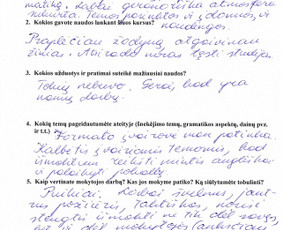 matiką. Labai gera nuotaika atmosfera
Temos parinktos įdomios, vi
naudingos.
2. Kokios gavote naudos lankant šiuos kursus?
Praplečiau žodyną, atgaivinau
žinias. Atsirado noras tęsti studijas.
3. Kokios užduotys ir pratimai suteikė mažiausiai naudos?
Tokių nebuvo. Gerai, kad yra
namų darbų.
4. Kokių temų pageidautumėte ateityje (lnekėjimo temų, gramatikos aspektų, dainų pvz.
ir t.t.)
Formato įvairovė man patinka.
Kalbėtis įvairiomis temomis, kad
išmokčiau reikšti mintis angliškai
ir palaikyti pokalbį.
5. Kaip vertinate mokytojos darbą? Kas jos mokyme patiko? Ką siūlytumėte tobulinti?
Puikiai. Labai švelniai, jaut-
rus požiūris, taktiškas, noriai
stengtis išmokti ne tik dėl savęs,
bet ir dėl mokytojos